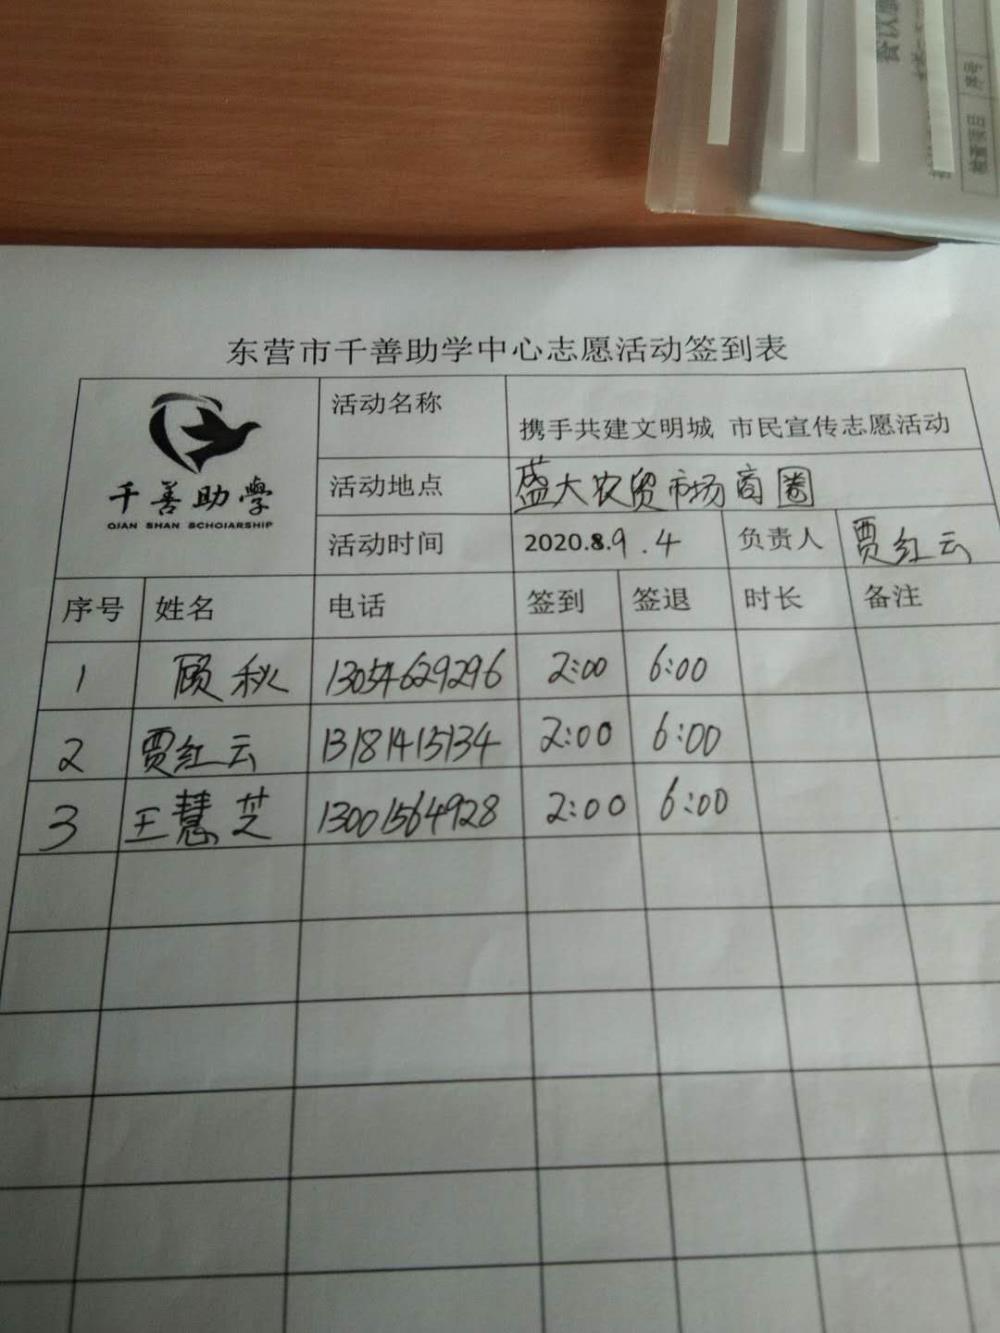 东营市千善助学中心志愿活动签到表
千善助學
QIAN SHAN SCHOIARSHIP
活动名称 携手共建文明城 市民宣传志愿活动
活动地点 盛大农贸市场商圈
活动时间 2020.8.9.4 负责人 贾红云
序号 姓名 电话 签到 签退 时长 备注
1 顾秋 13054629296 2:00 6:00
2 贾红云 13181415134 2:00 6:00
3 王慧芝 13001564928 2:00 6:00
序号